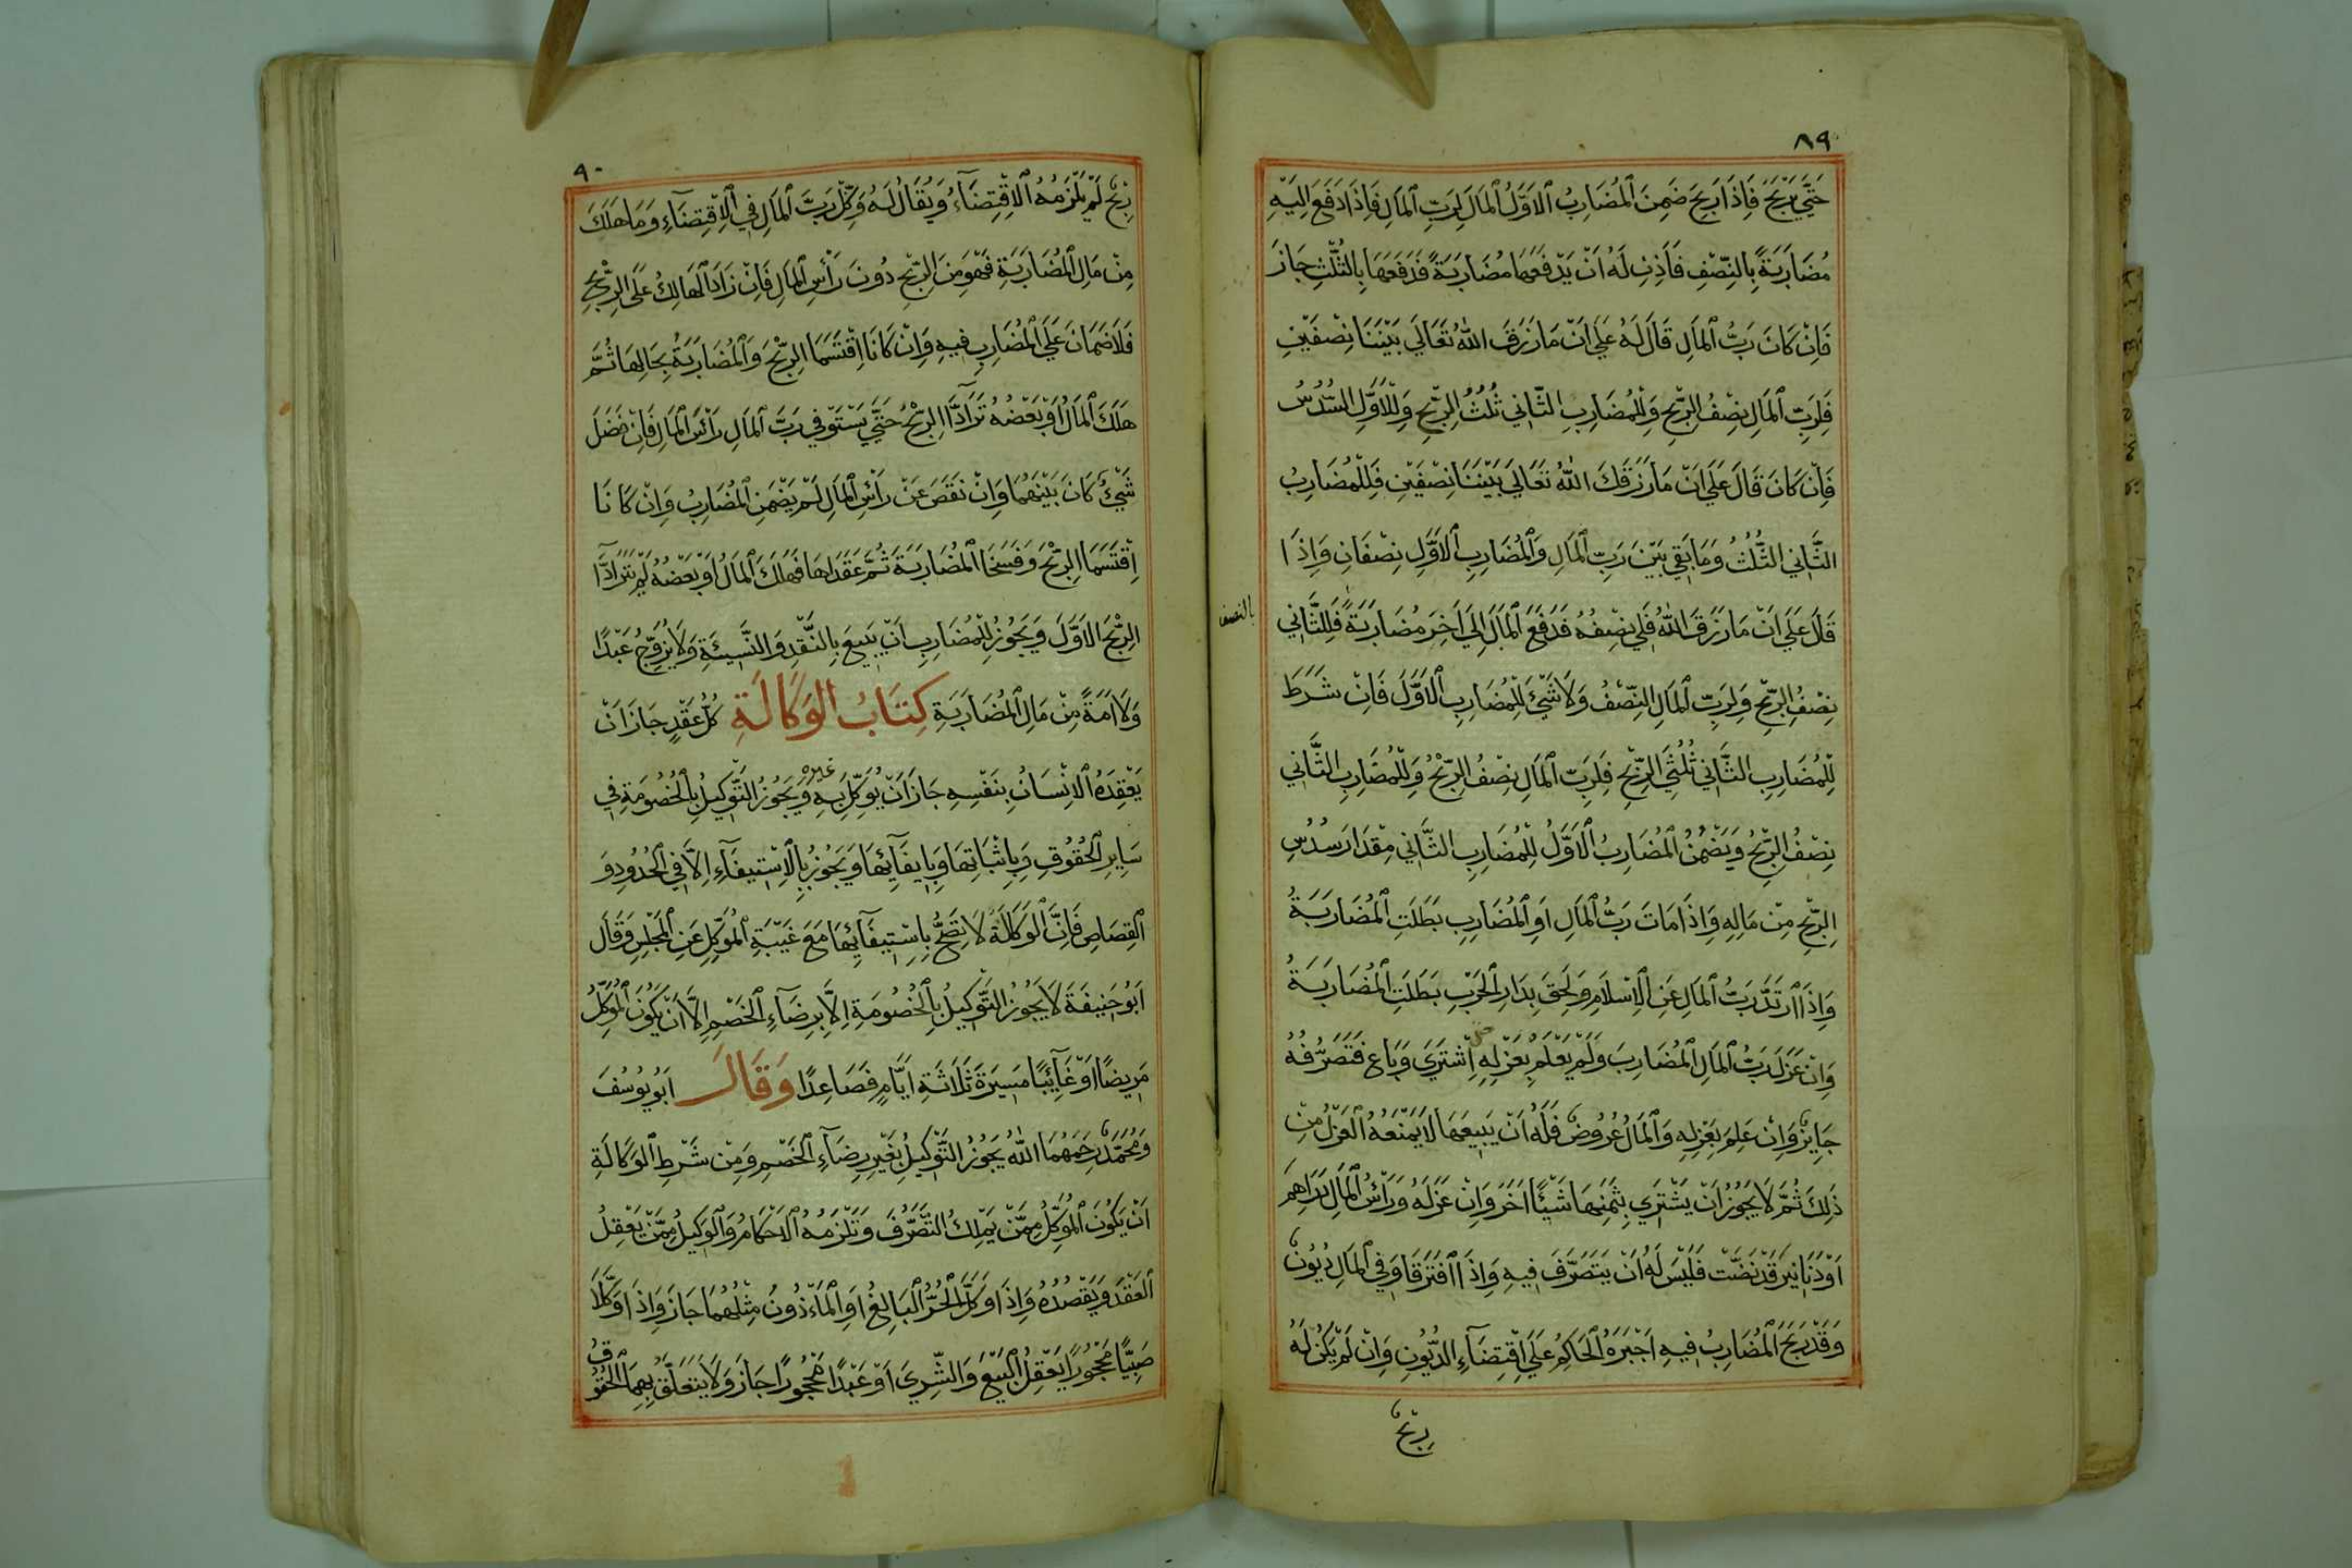 ٨٩
حَتَّي يَرْبَحَ فَاِذَا رَبِحَ ضَمِنَ الْمُضَارِبُ الْاَوَّلُ الْمَالَ لِرَبِّ الْمَالِ فَاِذَا دَفَعَ اِلَيْهِ
مُضَارَبَةً بِالنِّصْفِ فَاَذِنَ لَهُ اَنْ يَدْفَعَهَا مُضَارَبَةً فَدَفَعَهَا بِالثُّلُثِ جَازَ
فَاِنْ كَانَ رَبُّ الْمَالِ قَالَ لَهُ عَلَي اَنْ مَا رَزَقَ اللّٰهُ تَعَالَي بَيْنَنَا نِصْفَيْنِ
فَلِرَبِّ الْمَالِ نِصْفُ الرِّبْحِ وَلِلْمُضَارِبِ الثَّانِي ثُلُثُ الرِّبْحِ وَلِلْاَوَّلِ السُّدُسُ
فَاِنْ كَانَ قَالَ عَلَي اَنْ مَا رَزَقَكَ اللّٰهُ تَعَالَي بَيْنَنَا نِصْفَيْنِ فَلِلْمُضَارِبُ
الثَّانِي الثُّلُثُ وَمَا بَقِي بَيْنَ رَبِّ الْمَالِ وَالْمُضَارِبِ الْاَوَّلِ نِصْفَانِ وَاِذَا
قَالَ عَلَي اَنْ مَا رَزَقَ اللّٰهُ فَلِي نِصْفُهُ فَدَفَعَ الْمَالَ اِلَي اٰخَرَ مُضَارَبَةً فَلِلثَّانِي
بالنصف
نِصْفُ الرِّبْحِ وَلِرَبِّ الْمَالِ النِّصْفُ وَلَا شَيْءَ لِلْمُضَارِبِ الْاَوَّلِ فَاِنْ شَرَطَ
لِلْمُضَارِبِ الثَّانِي ثُلُثَيِ الرِّبْحِ فَلِرَبِّ الْمَالِ نِصْفُ الرِّبْحُ وَلِلْمُضَارِبِ الثَّانِي
نِصْفُ الرِّبْحُ وَيَضْمَنُ الْمُضَارِبُ الْاَوَّلُ لِلْمُضَارِبِ الثَّانِي مِقْدَارَ سُدُسِ
الرِّبْحِ مِنْ مَالِهِ وَاِذَا مَاتَ رَبُّ الْمَالِ اَوِ الْمُضَارِبِ بَطَلَتِ الْمُضَارَبَةُ
وَاِذَا ارْتَدَّ رَبُّ الْمَالِ عَنِ الْاِسْلَامِ وَلَحِقَ بِدَارِ الْحَرْبِ بَطَلَتِ الْمُضَارَبَةُ
وَاِنْ عَزَلَ رَبُّ الْمَالِ الْمُضَارِبَ وَلَمْ يَعْلَمْ بِعَزْلِهِ اِشْتَرَي وَبَاعَ فَتَصَرُّفُهُ
جَايِزٌ وَاِنْ عَلِمَ بِعَزْلِهِ وَالْمَالُ عُرُوضٌ فَلَهُ اَنْ يَبِيعَهَا لَا يَمْنَعُهُ الْعَزْلُ مِنْ
ذٰلِكَ ثُمَّ لَا يَجُوزُ اَنْ يَشْتَرِي بِثَمَنِهَا شَيْئًا اٰخَرَ وَاِنْ عَزَلَهُ وَرَاْسُ الْمَالِ دَرَاهِمَ
اَوْ دَنَانِيرَ قَدْ نَضَّتْ فَلَيْسَ لَهُ اَنْ يَتَصَرَّفَ فِيهِ وَاِذَا افْتَرَقَا وَفِي الْمَالِ دُيُونٌ
وَقَدْ رَبِحَ الْمُضَارِبُ فِيهِ اَجْبَرَهُ الْحَاكِمُ عَلَي اقْتِضَآءِ الدُّيُونِ وَاِنْ لَمْ يَكُنْ لَهُ
رِبْحٌ
٩٠
رِبْحٌ لَمْ يَلْزَمْهُ الْاِقْتِضَآءُ وَيُقَالُ لَهُ وَكِّلْ رَبَّ الْمَالِ فِي الْاِقْتِضَآءِ وَمَا هَلَكَ
مِنْ مَالِ الْمُضَارَبَةِ فَهُوَ مِنَ الرِّبْحِ دُونَ رَأْسِ الْمَالِ فَاِنْ زَادَ الْهَالِكُ عَلَي الرِّبْحِ
فَلَا ضَمَانَ عَلَي الْمُضَارِبِ فِيهِ وَاِنْ كَانَا اِقْتَسَمَا الرِّبْحَ وَالْمُضَارَبَةُ بِحَالِهَا ثُمَّ
هَلَكَ الْمَالُ اَوْ بَعْضُهُ تَرَآدَّا الرِّبْحُ حَتَّي يَسْتَوْفِي رَبَّ الْمَالِ رَأْسَ الْمَالِ فَاِنْ فَضَلَ
شَيْءٌ كَانَ بَيْنَهُمَا وَاِنْ نَقَصَ عَنْ رَأْسِ الْمَالِ لَمْ يَضْمَنِ الْمُضَارِبُ وَاِنْ كَانَا
اِقْتَسَمَا الرِّبْحَ وَفَسَخَا الْمُضَارَبَةَ ثُمَّ عَقَدَاهَا فَهَلَكَ الْمَالُ اَوْ بَعْضُهُ لَمْ يَتَرَادَّآ
الرِّبْحَ الْاَوَّلَ وَيَجُوزُ لِلْمُضَارِبِ اَنْ يَبِيعَ بِالنَّقْدِ وَالنَّسِيئَةِ وَلَا يُزَوِّجُ عَبْدًا
وَلَا اَمَةً مِنْ مَالِ الْمُضَارَبَةِ كِتَابُ الْوَكَالَةِ كُلُّ عَقْدٍ جَازَ اَنْ
يَعْقِدَهُ الْاِنْسَانُ بِنَفْسِهِ جَازَ اَنْ يُوَكِّلَ بِهِ غيره وَيَجُوزُ التَّوْكِيلُ بِالْخُصُومَةِ فِي
سَايِرِ الْحُقُوقِ وَبِاِثْبَاتِهَا وَبِاِيفَآئِهَا وَيَجُوزُ بِالْاِسْتِيفَآءِ اِلَّا فِي الْحُدُودِ وَ
الْقِصَاصِ فَاِنَّ الْوَكَالَةَ لَا تَصِحُّ بِاِسْتِيفَآئِهَا مَعَ غَيْبَةِ الْمُوَكِّلِ عَنِ الْمَجْلِسِ وَقَالَ
اَبُو حَنِيفَةَ لَا يَجُوزُ التَّوْكِيلُ بِالْخُصُومَةِ اِلَّا بِرِضَآءِ الْخَصْمِ اِلَّا اَنْ يَكُونَ الْمُوَكِّلُ
مَرِيضًا اَوْ غَآئِبًا مَسِيرَةَ ثَلَاثَةِ اَيَّامٍ فَصَاعِدًا وَقَالَ اَبُو يُوسُفَ
وَمُحَمَّدٌ رَحِمَهُمَا اللّٰهُ يَجُوزُ التَّوْكِيلُ بِغَيْرِ رِضَآءِ الْخَصْمِ وَمِنْ شَرْطِ الْوَكَالَةِ
اَنْ يَكُونَ الْمُوَكِّلُ مِمَّنْ يَمْلِكُ التَّصَرُّفَ وَتَلْزَمُهُ الْاَحْكَامُ وَالْوَكِيلُ مِمَّنْ يَعْقِلُ
الْعَقْدَ وَيَقْصُدُهُ وَاِذَا وَكَّلَ الْحُرُّ الْبَالِغُ اَوِ الْمَاْذُونُ مِثْلَهُمَا جَازَ وَاِذَا وَكَّلَا
صَبِيًّا مَحْجُورًا يَعْقِلُ الْبَيْعَ وَالشِّرَي اَوْ عَبْدًا مَحْجُورًا جَازَ وَلَا يَتَعَلَّقُ بِهِمَا الْحُقُوقُ